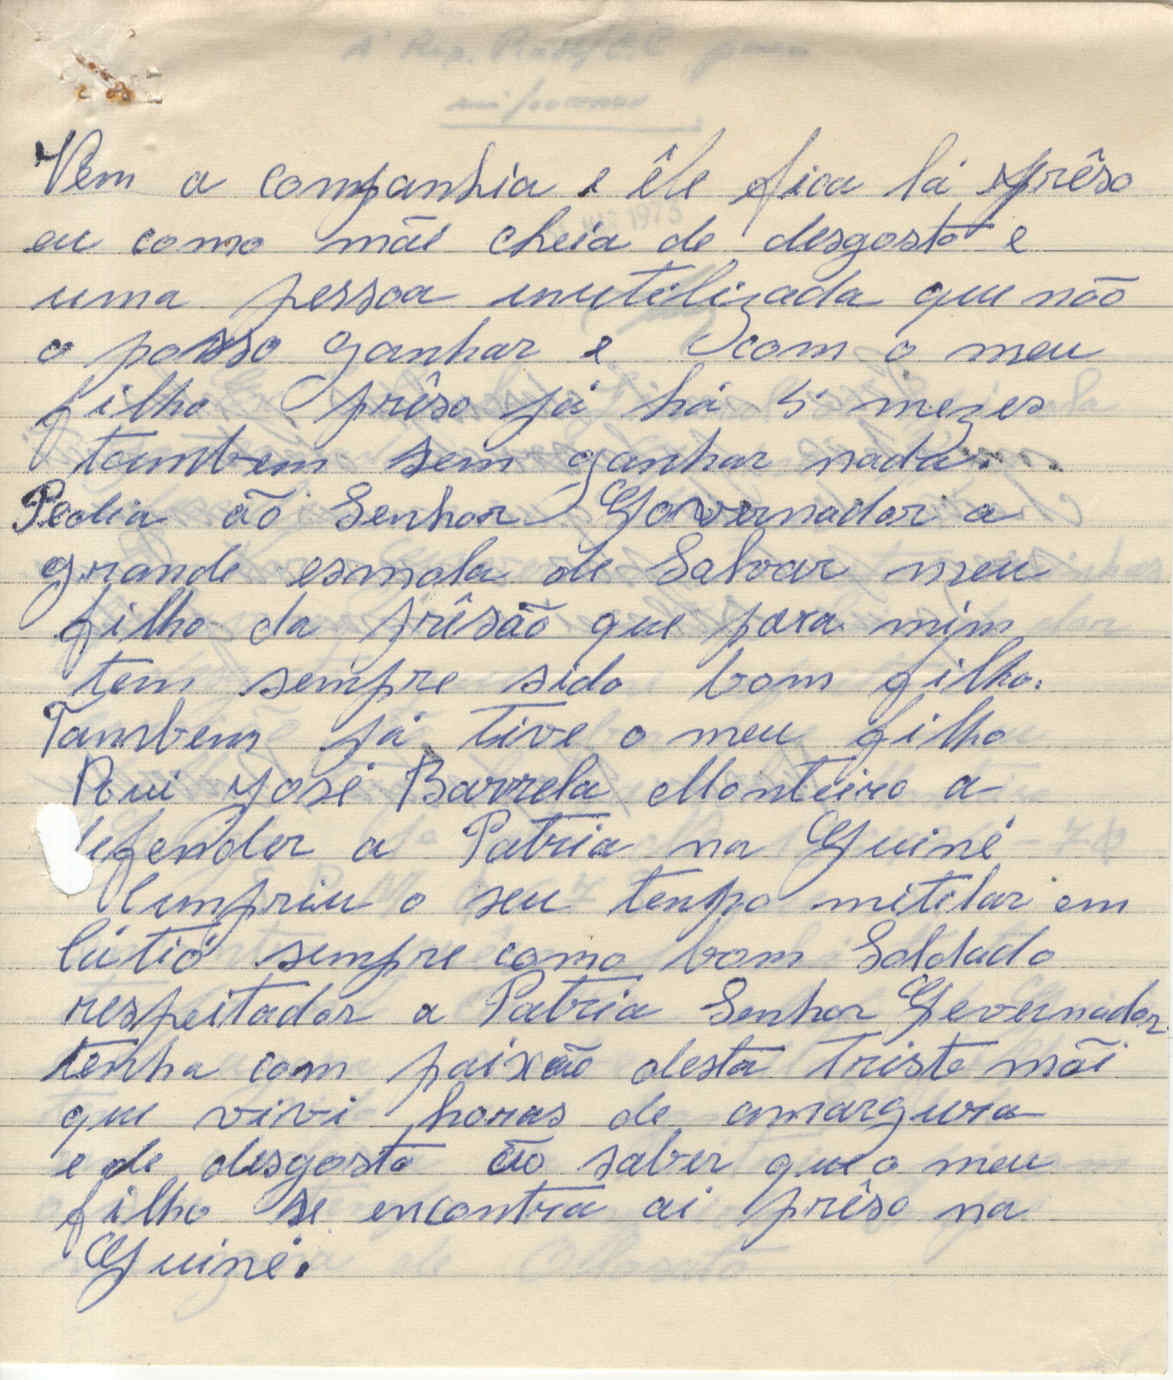 Vem a companhia e êle fica lá prêso
eu como mãi cheia de desgosto e
uma pessoa inutilizada que não
o posso ganhar e com o meu
filho prêso já há 5 mezes
tambem sem ganhar nada.
Pedia ão Senhor Governador a
grande esmola de Salvar meu
filho da prêsão que para mim
tem sempre sido bom filho.
Tambem já tive o meu filho
Rui José Barrela Monteiro a
defender a Patria na Guiné
Cumpriu o seu tempo mitilar em
Cútió sempre como bom Soldado
respeitador a Patria Senhor Gevernador
tenha com paixão desta triste mãi
que vivi horas de amargura
e de desgosto ão saber que o meu
filho se encontra ai prêso na
Guiné.